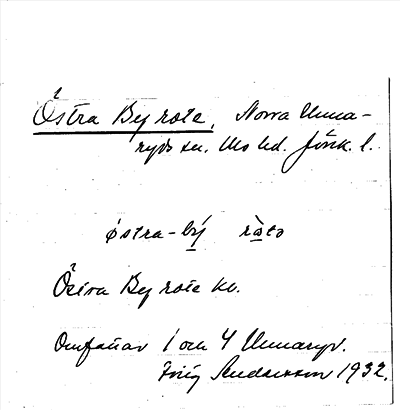 Östra By rote, Norra Unna-
ryds sn. Mo hd. Jönk. l.
östra-bý ràtə
Östra By rote kv.
Omfattar 1 och 4 Unnaryd.
Andersson 1932.